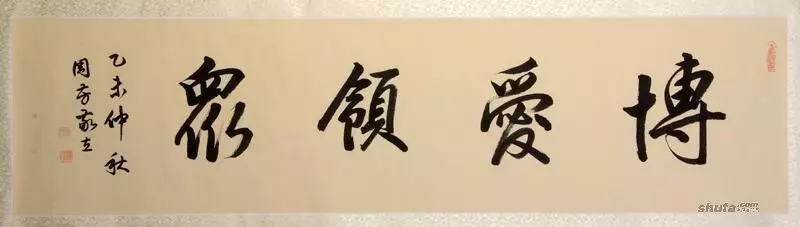 博愛領衆
乙未仲秋
周
shufa.com